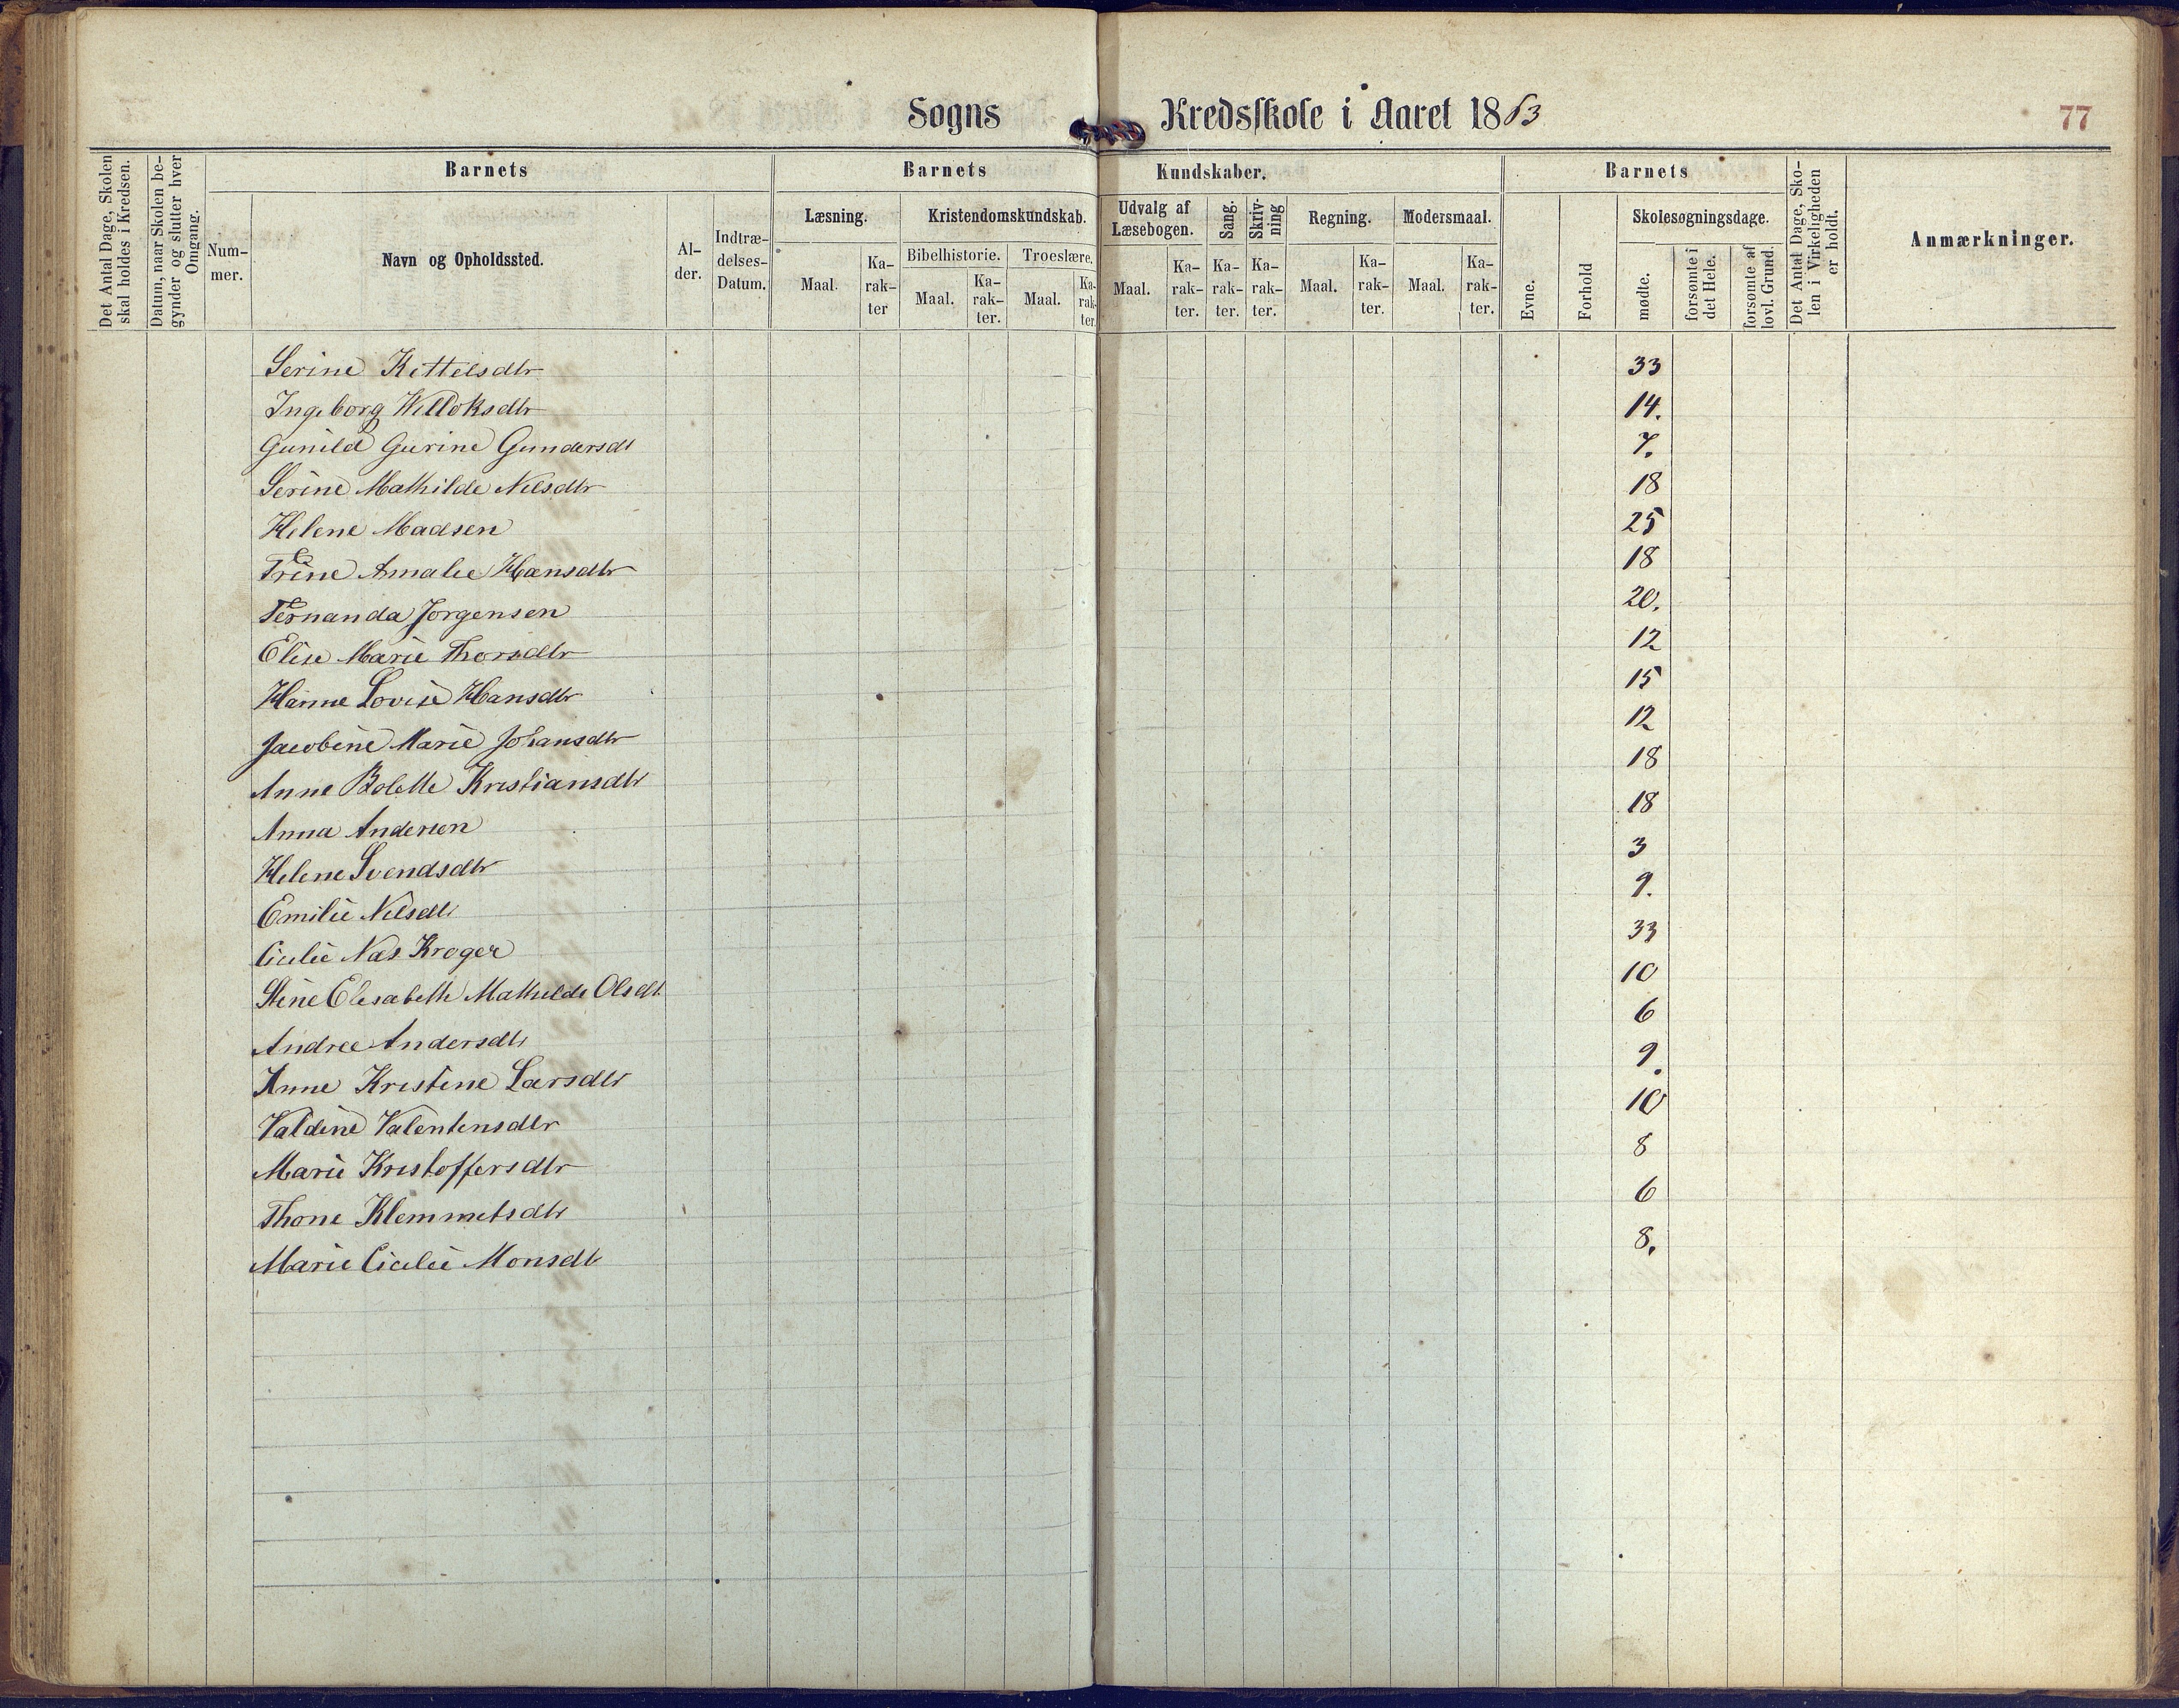 Sogns Kredsskole i Aaret 1863
77
Det Antal Dage, Skolen skal holdes i Kredsen.
Datum, naar Skolen be-gynder og slutter hver Omgang.
Barnets
Num-mer.
Navn og Opholdssted.
Al-der.
Indtræ-delses-Datum.
Barnets Kundskaber.
Læsning.
Maal.
Ka-rak-ter
Kristendomskundskab.
Bibelhistorie.
Maal.
Ka-rak-ter.
Troeslære.
Maal.
Ka-rak-ter.
Udvalg af Læsebogen.
Maal.
Ka-rak-ter.
Sang.
Ka-rak-ter.
Skriv-ning
Ka-rak-ter.
Regning.
Maal.
Ka-rak-ter.
Modersmaal.
Maal.
Ka-rak-ter.
Barnets
Evne.
Forhold
Skolesøgningsdage.
mødte.
forsømte i det Hele.
forsømte af lovl. Grund.
Det Antal Dage, Sko-len i Virkeligheden er holdt.
Anmærkninger.
Serine Kittelsdtr 33
Ingeborg Willoksdtr 14.
Gunild Gurine Gundersdt 7.
Serine Mathilde Nilsdtr 18
Helene Madsen 25
Trine Amalie Hansdtr 18
Fernanda Jorgensen 20.
Elise Marie Thorsdtr 12
Hanne Lovise Hansdtr 15
Jacobine Marie Johansdtr 12
Anne Bolette Kristiansdtr 18
Anna Andersen 18
Helene Svendsdtr 3
Emilie Nilsdtr 9.
Cicilie Næs Kroger 33
Stine Elisabeth Mathilde Olsdt. 10
Andrea Andersdtr 6
Anne Kristine Larsdtr 9.
Valdine Valentinsdtr 10
Marie Kristoffersdtr 8
Thone Klemmetsdtr 6
Marie Cicilie Monsdtr 8.